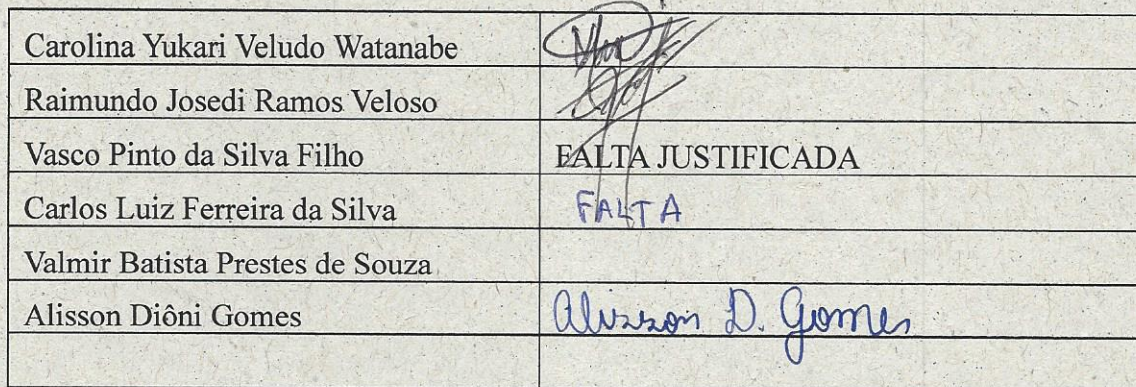 Carolina Yukari Veludo Watanabe
Raimundo Josedi Ramos Veloso
Vasco Pinto da Silva Filho FALTA JUSTIFICADA
Carlos Luiz Ferreira da Silva FALTA
Valmir Batista Prestes de Souza
Alisson Diôni Gomes Alisson D. Gomes